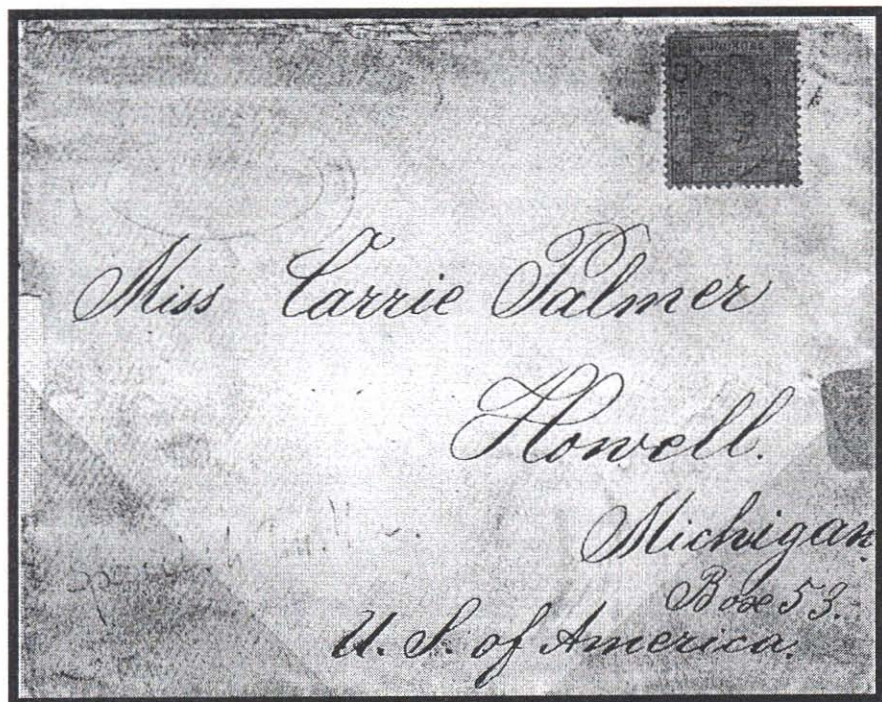 HONG KONG
Miss Carrie Palmer
Howell.
Michigan.
Box 53.
U. S. of America.